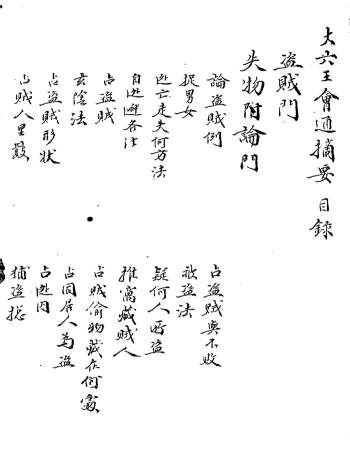 大六壬會通摘要 目錄
盜賊門
失物附論門
論盜賊例
捉男女
逃亡走失何方法
自逃避各法
占盜賊
玄陰法
占盜賊形狀
占賊人里數
占盜賊與不敗
敗盜法
疑何人所盜
推窩藏賊人
占賊偷物藏在何處
占同居人為盜
占逃內
捕盜總